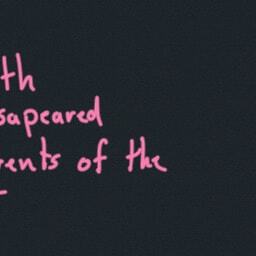 th
sapeared
rents of the